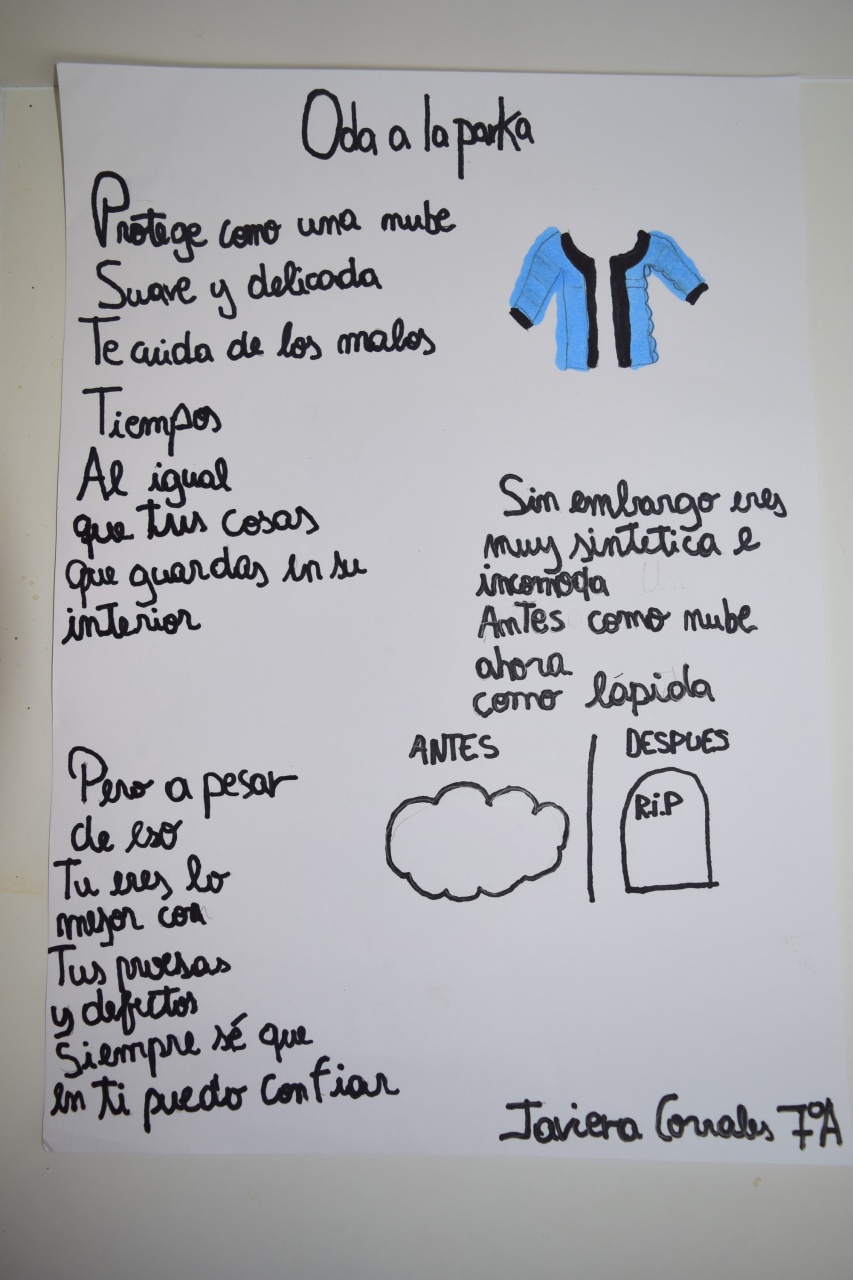 Oda a la parka
Protege como una nube
Suave y delicada
Te cuida de los malos
Tiempos
Al igual
que tus cosas
que guardas en su
interior
Sin embargo eres
muy sintetica e
incomoda
Antes como nube
ahora
como lápida
ANTES
DESPUES
R.i.P
Pero a pesar
de eso
Tu eres lo
mejor con
Tus proesas
y defectos
Siempre sé que
en ti puedo confiar
Javiera Corrales 7ºA